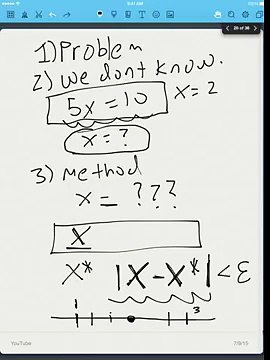 9:41 AM
20 of 36
1) Problem
2) we dont know.
5x = 10 x = 2
x = ?
3) Method
x = ???
X
X* |X - X*| < ε
3
YouTube
7/9/15